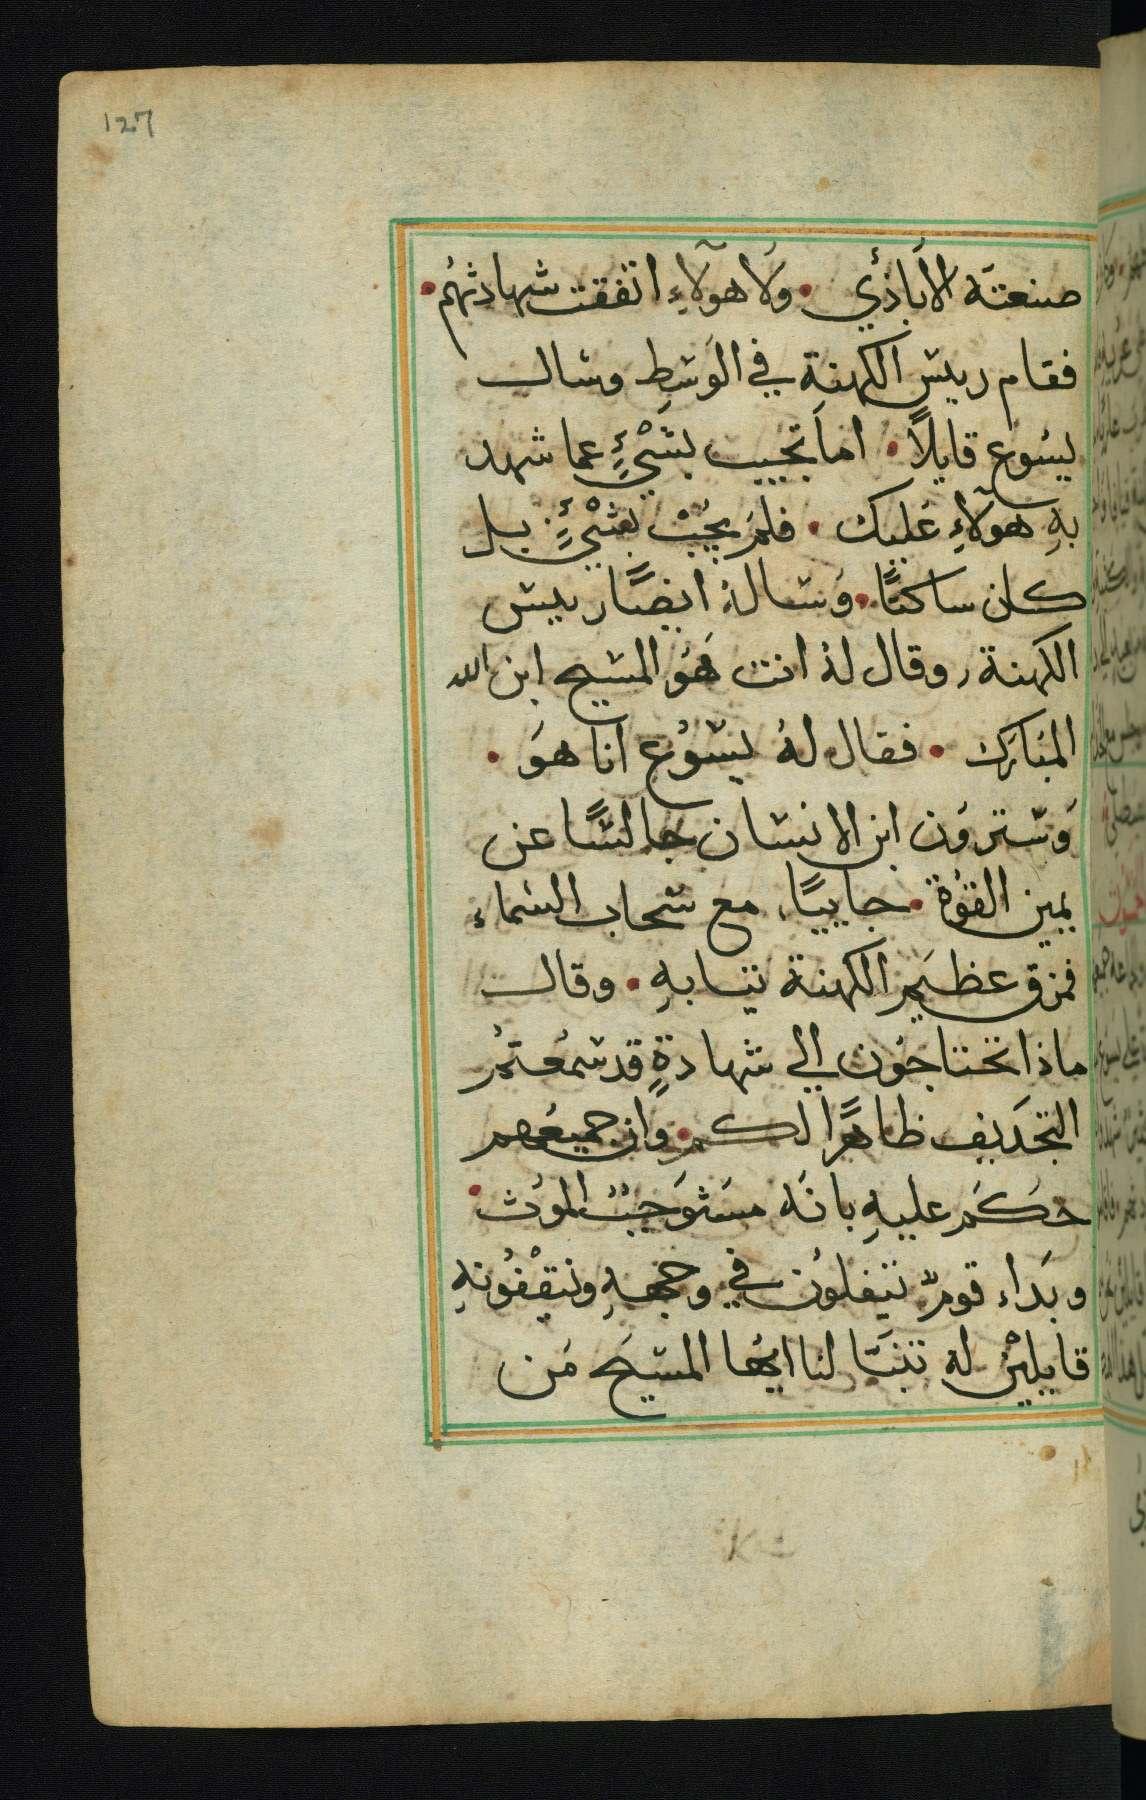 127
صنعتَه الاَبَاذئي • ولَا هولَآءِ اتفقت شهادثهُم •
فقام رييس الكهنةِ في الوَسَطِ وسال
يسُوع قايلاً • اماَ تجيب بشْيٍءٍ عما شهد
بهِ هولَآءِ عَليك • فلمَ يجُبْ بشْيٍءٍ بل
كان ساكتًا • وَسالهُ ايضًا رييس
الكهنة وقال لهُ انت هَوُ المسَيح ابن الله
المبَارَك • فقال لهُ يسَوُع اَنا هوَ •
وَسَتروُن ابن الانسَان جالسًا عن
يمين القوُة • جاييًا، مع سَحاب السَماء
فمزق عظيَم الكهنة ثيابهِ • وقال
ماذا تحتاجوُن الي شهادةٍ قد سَمعُتمُ
التجدَيف ظاهرًا لكم • وان جميعَهم
حكَمَ عليهِ بانَه مسَثوَجبُ الموَث •
وبَداء قومٌ يتفلوُن في وجههِ ويَقفوُنهِ
قايلينْ لهُ تنبَا لنا ايهُا المسَيحَ مَن